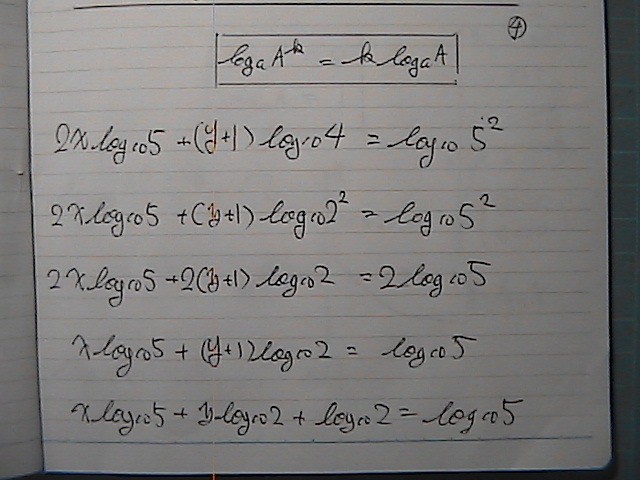 ④
logₐAᵏ = k logₐA
2x log₁₀5 + (y+1) log₁₀4 = log₁₀5²
2x log₁₀5 + (y+1) log₁₀2² = log₁₀5²
2x log₁₀5 + 2(y+1) log₁₀2 = 2 log₁₀5
x log₁₀5 + (y+1) log₁₀2 = log₁₀5
x log₁₀5 + y log₁₀2 + log₁₀2 = log₁₀5